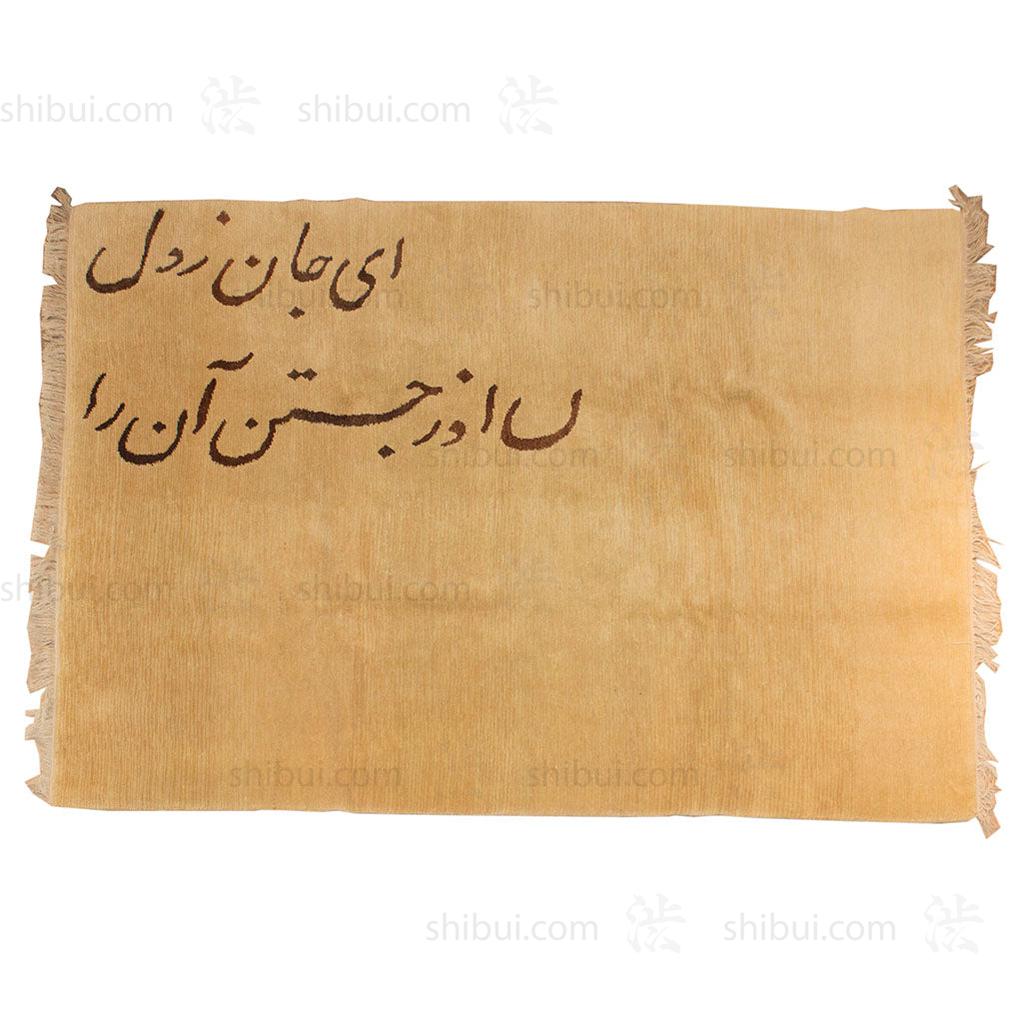 shibui.com 渋 shibui.com 渋
ای جان ز دل
shibui.com shibui.com
جستن آن را
shibui.com shibui.com
shibui.com shibui.com
shibui.com shibui.com
shibui.com 渋 shibui.com 渋